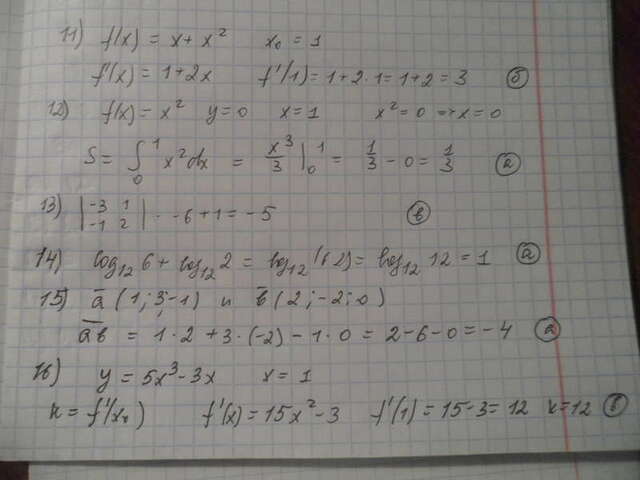 11) f(x) = x + x² x₀ = 1
f'(x) = 1+2x f'(1) = 1+2·1 = 1+2 = 3 б
12) f(x) = x² y = 0 x = 1 x² = 0 → x = 0
S = ∫₀¹ x²dx = x³/3 |₀¹ = 1/3 − 0 = 1/3 а
13) |-3 1|
|-1 2| · -6+1 = -5 в
14) log₁₂ 6 + log₁₂ 2 = log₁₂ (6·2) = log₁₂ 12 = 1 а
15) a (1; 3; -1) и b (2; -2; 0)
ab = 1·2 + 3·(-2) − 1·0 = 2−6−0 = −4 а
16) y = 5x³ − 3x x = 1
k = f'(x₀) f'(x) = 15x² − 3 f'(1) = 15−3 = 12 k=12 в